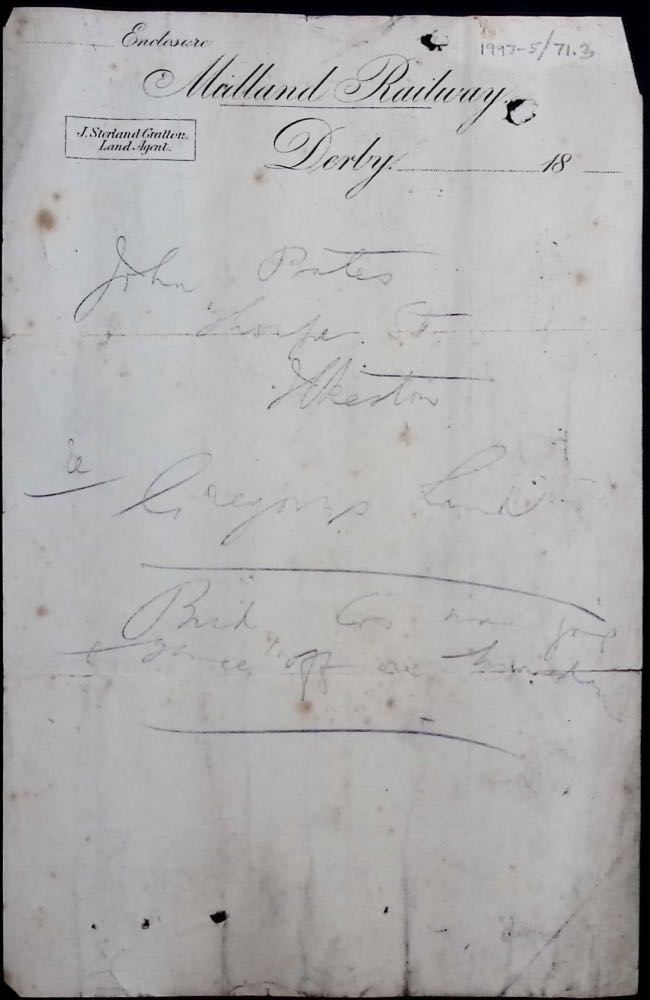 Enclosure
1997-5/71.3
Midland Railway,
J. Sterland Gratton,
Land Agent.
Derby 18
John Bates
Thorpe St
Ilkeston
Gregorys Land
Bird Cos
off on